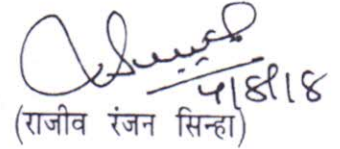 4/8/18
(राजीव रंजन सिन्हा)